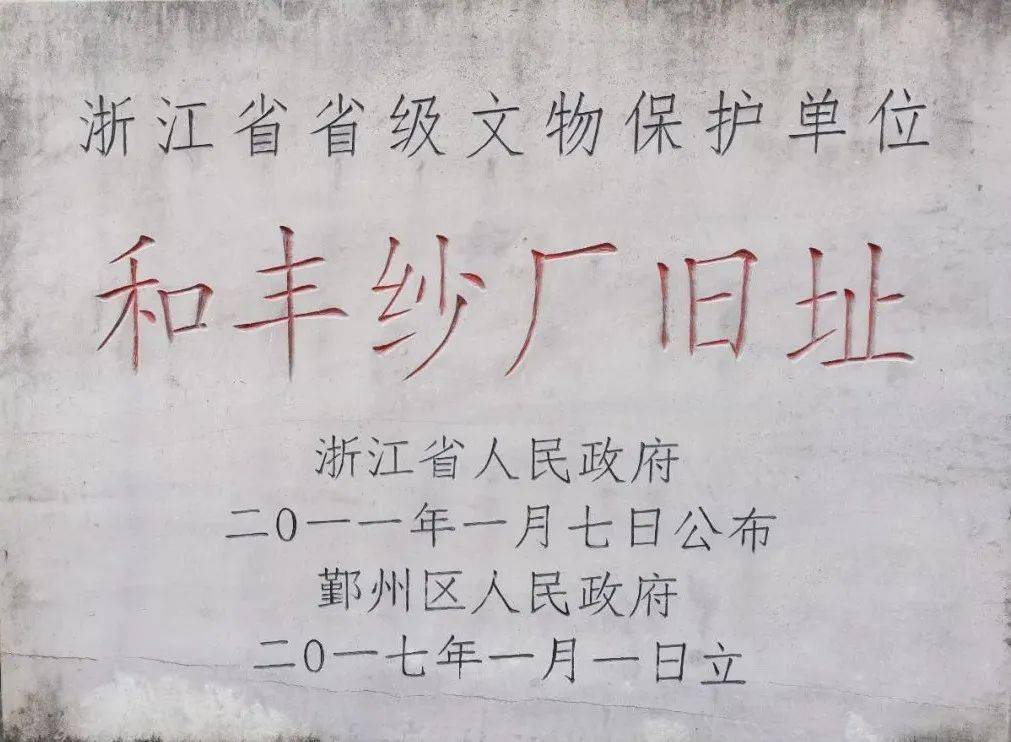 浙江省省级文物保护单位
和丰纱厂旧址
浙江省人民政府
二〇一一年一月七日公布
鄞州区人民政府
二〇一七年一月一日立